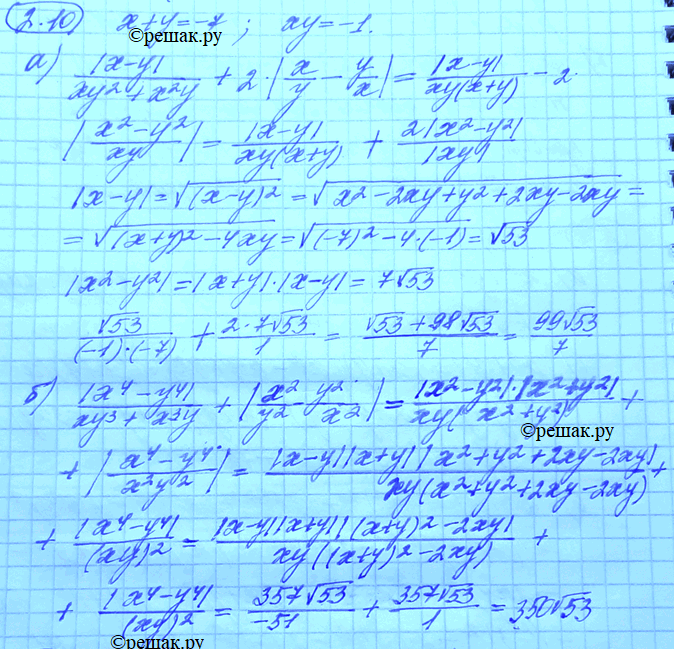 2.10) x+y=-7 ; xy=-1.
©решак.ру
а) |x-y|/(xy²+x²y) + 2·|x/y - y/x| = |x-y|/(xy(x+y)) - 2
|(x²-y²)/(xy)| = |x-y|/(xy(x+y)) + 2|x²-y²|/|xy|
|x-y|=√((x-y)²) = √(x²-2xy+y²+2xy-2xy) =
= √((x+y)²-4xy) = √((-7)²-4·(-1)) = √53
|x²-y²|=|x+y|·|x-y|=7√53
√53/((-1)·(-7)) + 2·7√53/1 = (√53+98√53)/7 = 99√53/7
б) |x⁴-y⁴|/(xy³+x³y) + |x²/y² - y²/x²| = |x²-y²|·|x²+y²|/(xy(x²+y²)) +
©решак.ру
+ |(x⁴-y⁴)/(x²y²)| = |x-y||x+y||x²+y²+2xy-2xy|/(xy(x²+y²+2xy-2xy)) +
+ |x⁴-y⁴|/(xy)² = |x-y||x+y||(x+y)²-2xy|/(xy((x+y)²-2xy)) +
+ |x⁴-y⁴|/(xy)² = 357√53/-51 + 357√53/1 = 350√53
©решак.ру